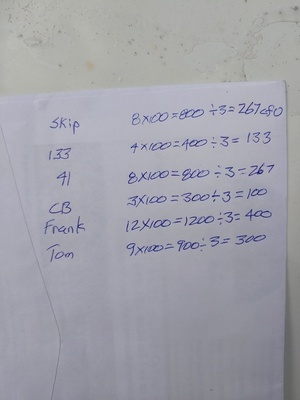 Skip 8x100=800÷3=267
133 4x100=400÷3=133
41 8x100=800÷3=267
CB 3x100=300÷3=100
Frank 12x100=1200÷3=400
Tom 9x100=900÷3=300